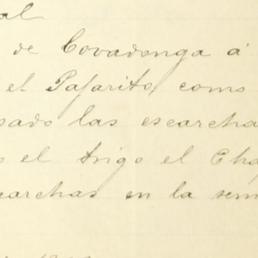 al
de Covadonga á
el Pajarito, como
sado las escarcha
o el trigo el Cha
carchas en la sem